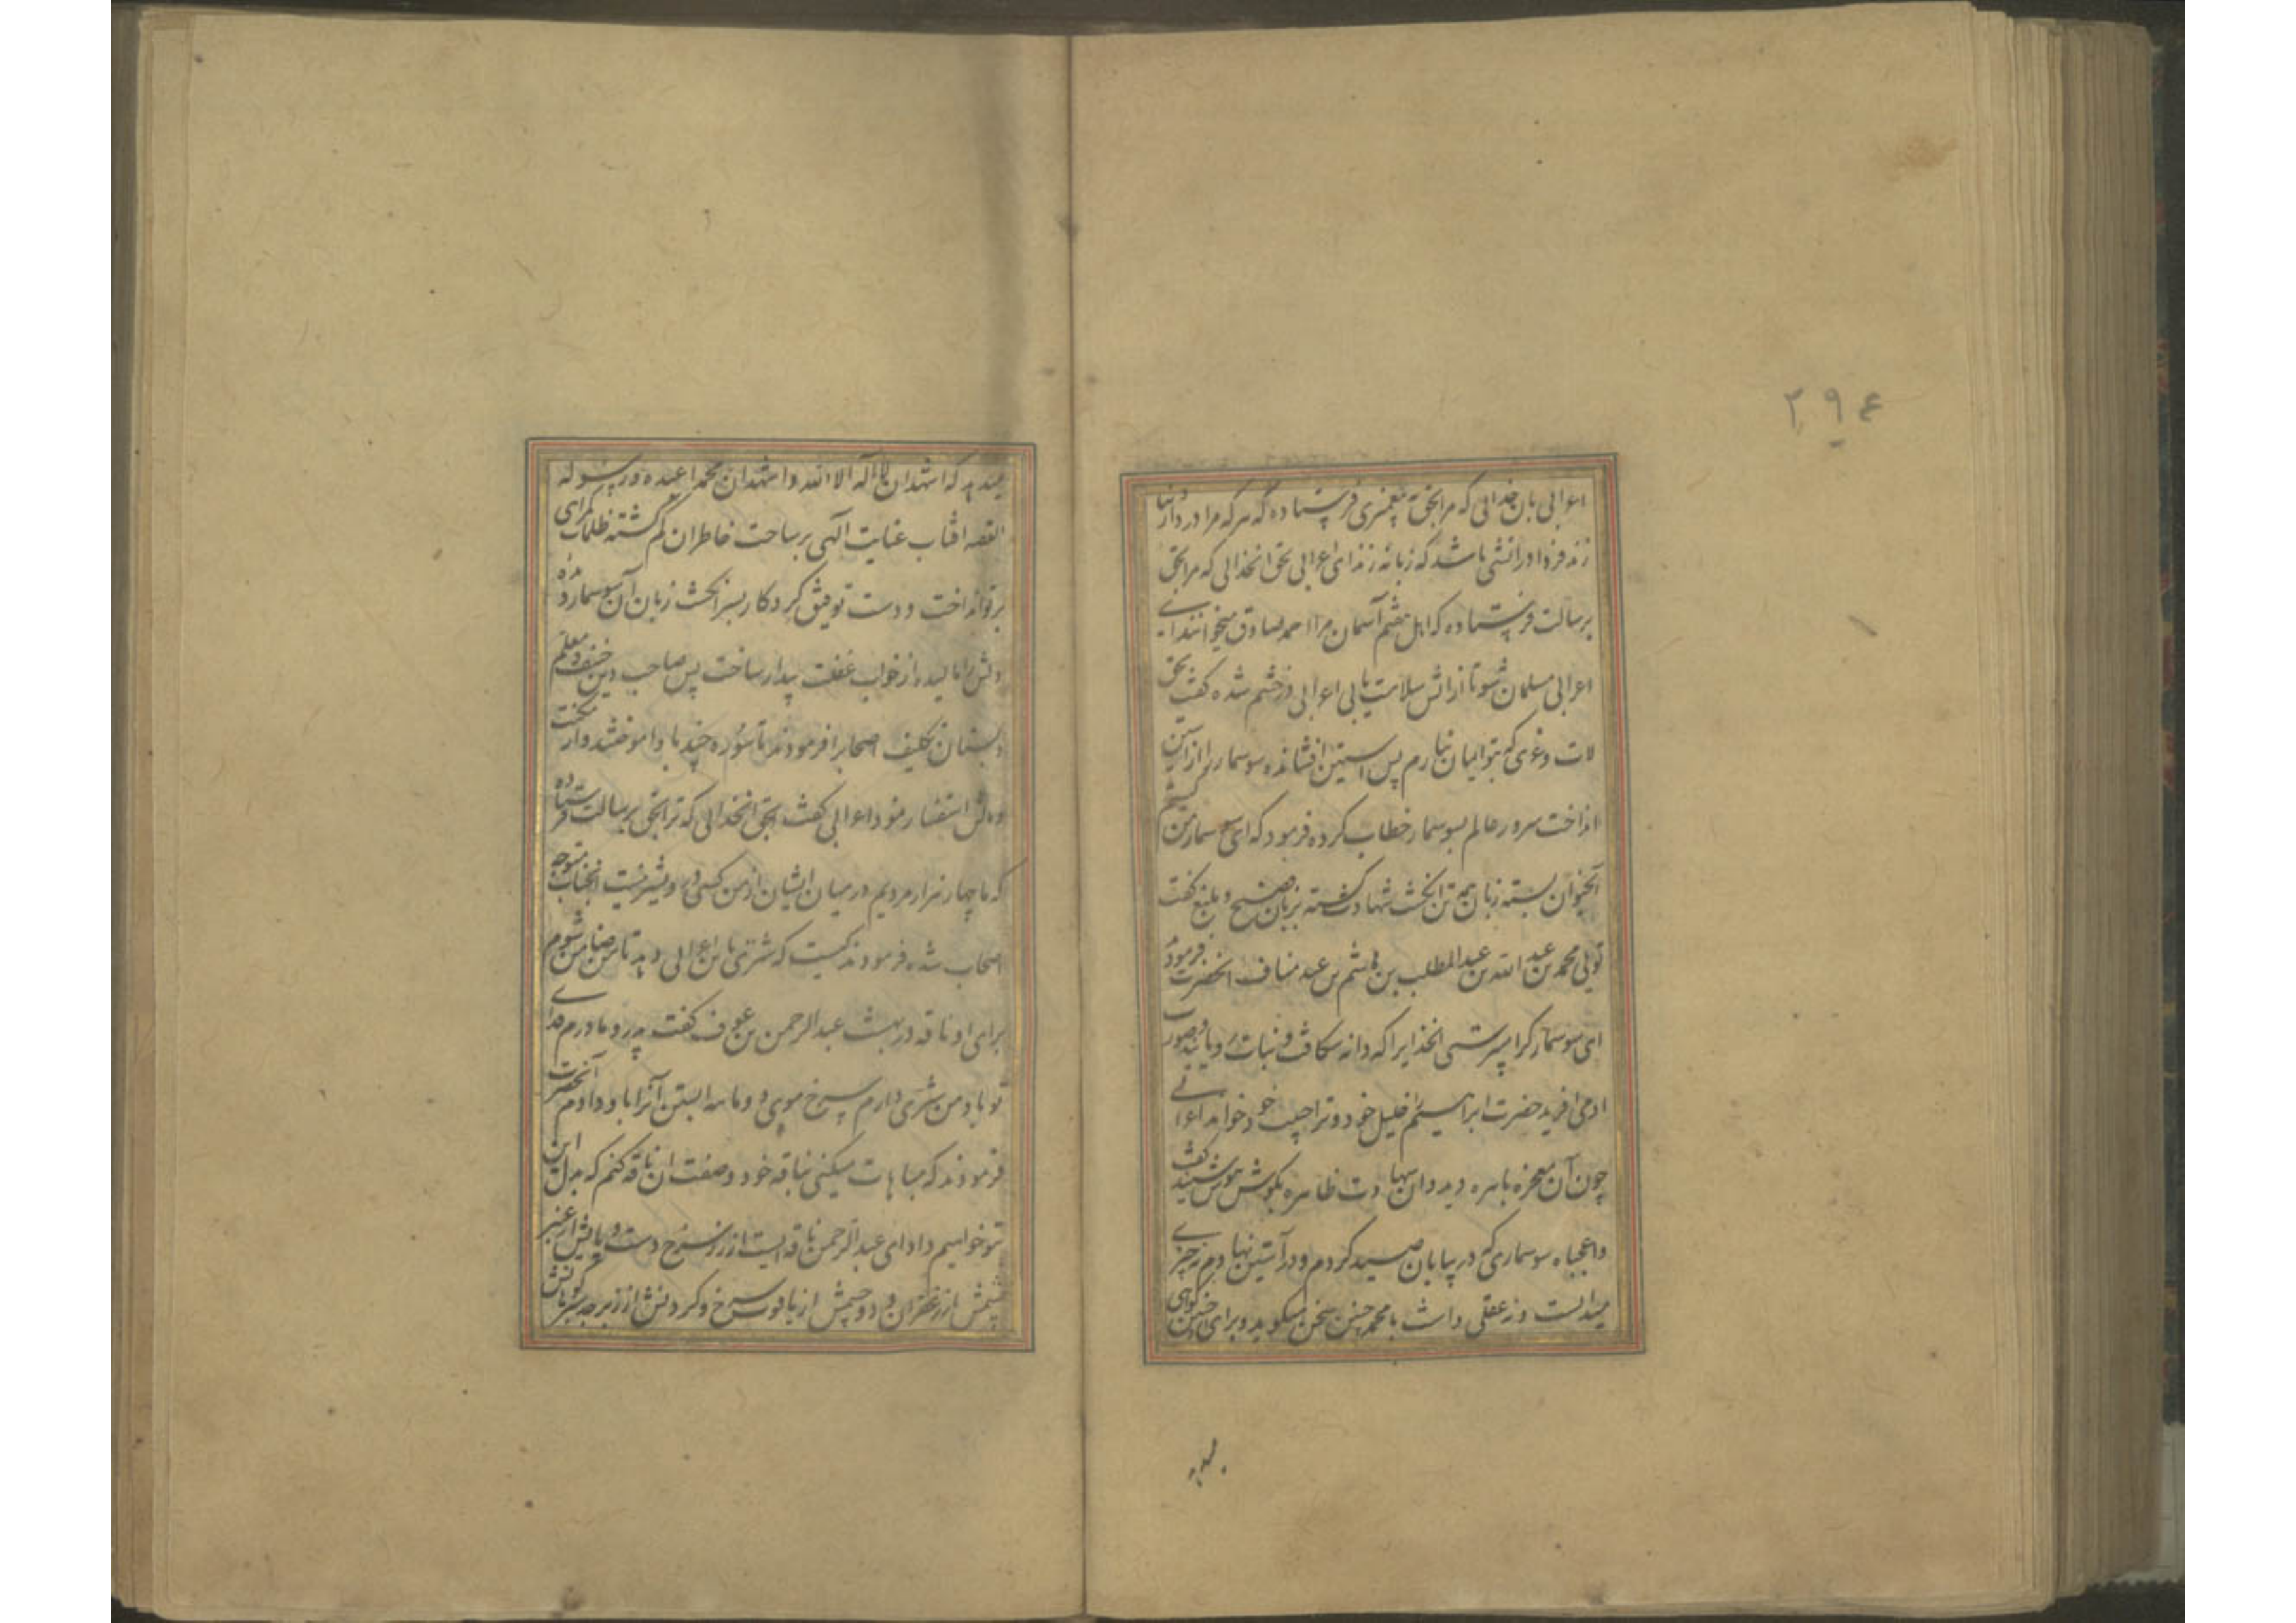 ۲۹۴
اعرابی بان خدائی که مرا بحق به پیغمبری فرستاده که هر که مرا در دار دنیا
زند فردا در آتشی باشد که زبانه زند ای اعرابی بحق انخدائی که مرا بحق
برسالت فرستاده که اهل هفتم آسمان مرا احمد صادق میخوانند ای
اعرابی مسلمان شو تا از اتش سلامت یابی اعرابی در خشم شده گفت بحق
لات و عزی که بتو ایمان نیارم پس استین افشانده سوسمار را از آستین
انداخت سرور عالم بسوسمار خطاب کرده فرمود که ای سوسمار من کیستم
آنحیوان بسته زبان انگشت شهادت گشته بزبان فصیح و بلیغ گفت
توئی محمد بن عبد الله بن عبد المطلب بن هاشم بن عبد مناف انحضرت فرمود
ای سوسمار کرا میپرستی انخدایرا که دانه شکافت و نبات رویانید و صورت
ادمی افرید حضرت ابراهیم خلیل خود و ترا حبیب خود خواند اعرابی
چون آن معجزه باهره دید و ان شهادت ظاهره بگوش هوش شنید گفت
واعجباه سوسماری که در بیابان صید کردم و در آستین نهادم نه چیزی
میدانست و نه عقلی داشت با محمد چنین سخن میگوید و برای چنین گواهی
میدهد
میدهد که اشهد ان لا اله الا الله و اشهد ان محمدا عبده و رسوله
القصه افتاب عنایت الهی بر ساحت خاطر ان گم گشته ظلمات گمراهی
پرتو انداخت و دست توفیق کردگار بسر انگشت زبان آن سوسمار دیده
دلش را مالیده از خواب غفلت بیدار ساخت پس صاحب دین حنیف و معلم
دبستان تکلیف اصحابرا فرمودند تا سوره چند باو اموختند و از مکنت
و مالش استفسار نمود اعرابی گفت بحق انخدائی که ترا بحق برسالت فرستاده
که ما چهار هزار مردیم در میان ایشان از من کسی درویشتر نیست انجناب متوجه
اصحاب شده فرمودند کیست که شتری باین اعرابی دهد تا من ضامن شوم
برای او ناقه در بهشت عبد الرحمن بن عوف گفت پدر و مادرم فدای
تو باد من شتری دارم سرخ موی ده ماهه ابستن آنرا باو دادم آنحضرت
فرمودند که مباهات میکنی بناقه خود وصفت ان ناقه کنم که بدل این
بتو خواهیم داد ای عبد الرحمن ناقه ایست از زر سرخ دست و پایش از عنبر
پشمش از زعفران و دو چشمش از یاقوت سرخ و گردنش از زبرجد سبز